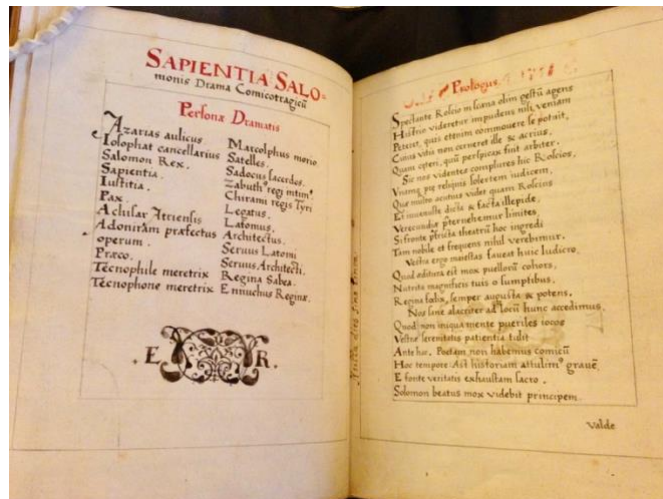 SAPIENTIA SALO=
monis Drama Comicotragicũ
Personæ Dramatis
Azarias aulicus.
Iosophat cancellarius
Salomon Rex.
Sapientia.
Iustitia.
Pax.
Achisar Atriensis
Adoniram præfectus
operum.
Præco.
Tecnophile meretrix
Tecnophone meretrix
Marcolphus morio
Satelles.
Sadocus sacerdos.
Zabuthꝰ regi intimꝰ
Chirami regis Tyri
Legatus.
Latomus.
Architectus.
Seruus Latomi
Seruus Architecti.
Regina Sabea.
Ennuchus Reginæ.
.E R.
Prologus.
Spectante Roscio in scæna olim gestũ agens
Histrio videretur impudens nisi veniam
Peteret, quis etenim commouere se potuit,
Cuius vitii non cerneret ille & acrius,
Quam cæteri, quũ perspicax sinit arbiter.
Sic nos videntes complures hic Roscios,
Vnumq; præ reliquis solertem iudicem,
Que multo acutius videt quam Roscius
Et inuenuste dicta & facta illepide,
Verecundiæ prternehemur limites
Si fronte pfricta theatrũ hoc ingredi
Tam nobile et frequens nihil verebimur.
Vestra ergo maiestas faueat huic ludicro,
Quod editura est mox puellorũ cohors,
Nutrita magnificis tuis o sumptibus,
Regina fœlix, semper augusta & potens,
Nos sine alacriter ad locũ hunc accedimus,
Quod non iniqua mente pueriles iocos
Vestræ serenitatis patientia tulit
Ante hac. Poetam non habemus comicũ
Hoc tempore: Ast historiam attulimꝰ grauẽ,
E fonte veritatis exhaustam sacro.
Solomon beatus mox videbit principem
Valde